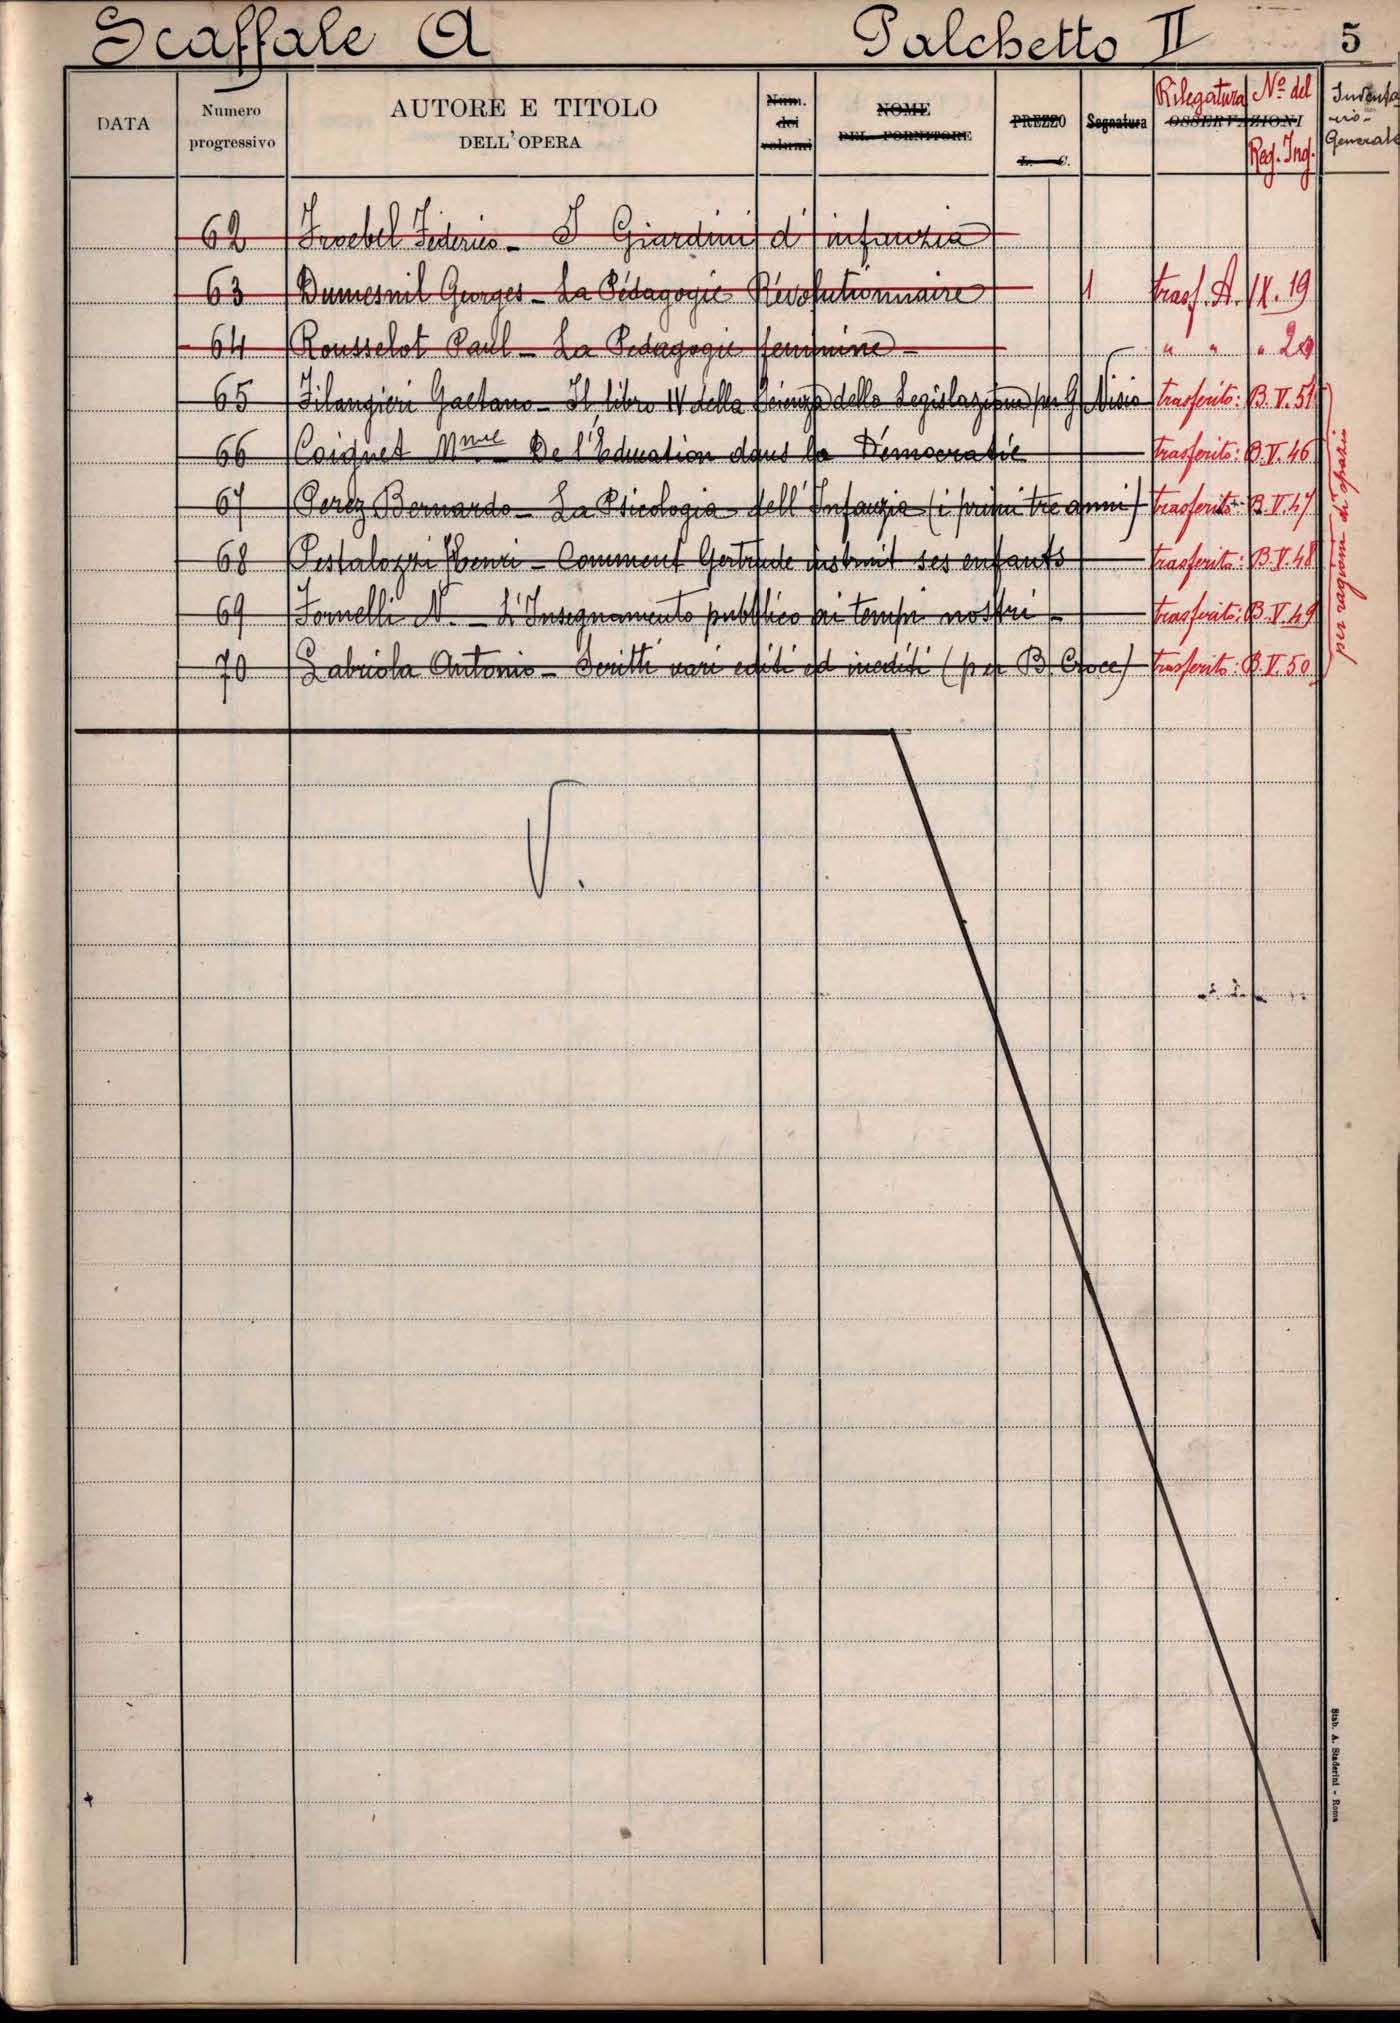 Scaffale A Palchetto II 5
DATA
Numero
progressivo
AUTORE E TITOLO
DELL'OPERA
Num.
dei
volumi
NOME
DEL FORNITORE
PREZZO
L. C.
Segnatura
Rilegatura
OSSERVAZIONI
Nº del
Reg. Ing.
Inventa-
rio
Generale
62 Froebel Federico - I Giardini d'infanzia
63 Dumesnil Georges - La Pédagogie Révolutionnaire 1 trasf. A. IX. 19
64 Rousselot Paul - La Pedagogie feminine - " " " 20
65 Filangieri Gaetano - Il libro IV della Scienza della Legislazione per G. Nisio trasferito: B. V. 51
66 Coignet Mme - De l'Education dans la Démocratie trasferito: B. V. 46
67 Perez Bernardo - La Psicologia dell'Infanzia (i primi tre anni) trasferito: B. V. 47
68 Pestalozzi Henri - Comment Gertrude instruit ses enfants trasferito: B. V. 48
69 Fornelli N. - L'Insegnamento pubblico ai tempi nostri - trasferito: B. V. 49
70 Labriola Antonio - Scritti vari editi ed inediti (per B. Croce) trasferito: B. V. 50
per ragioni di spazio
V.
Stab. A. Staderini - Roma